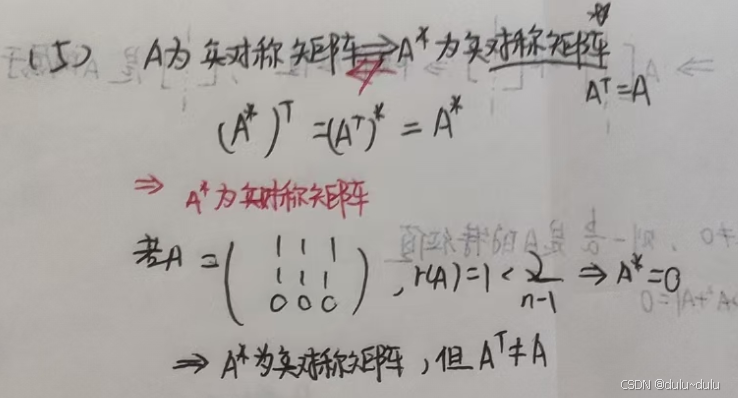 (5) A为实对称矩阵 ⇒ A* 为实对称矩阵
A^T=A
(A*)^T =(A^T)* = A*
⇒ A*为实对称矩阵
若A = ( 1 1 1
1 1 1
0 0 0 ) , r(A)=1 < 2 ⇒ A*=0
n-1
⇒ A*为实对称矩阵, 但 A^T≠A
CSDN @dulu~dulu